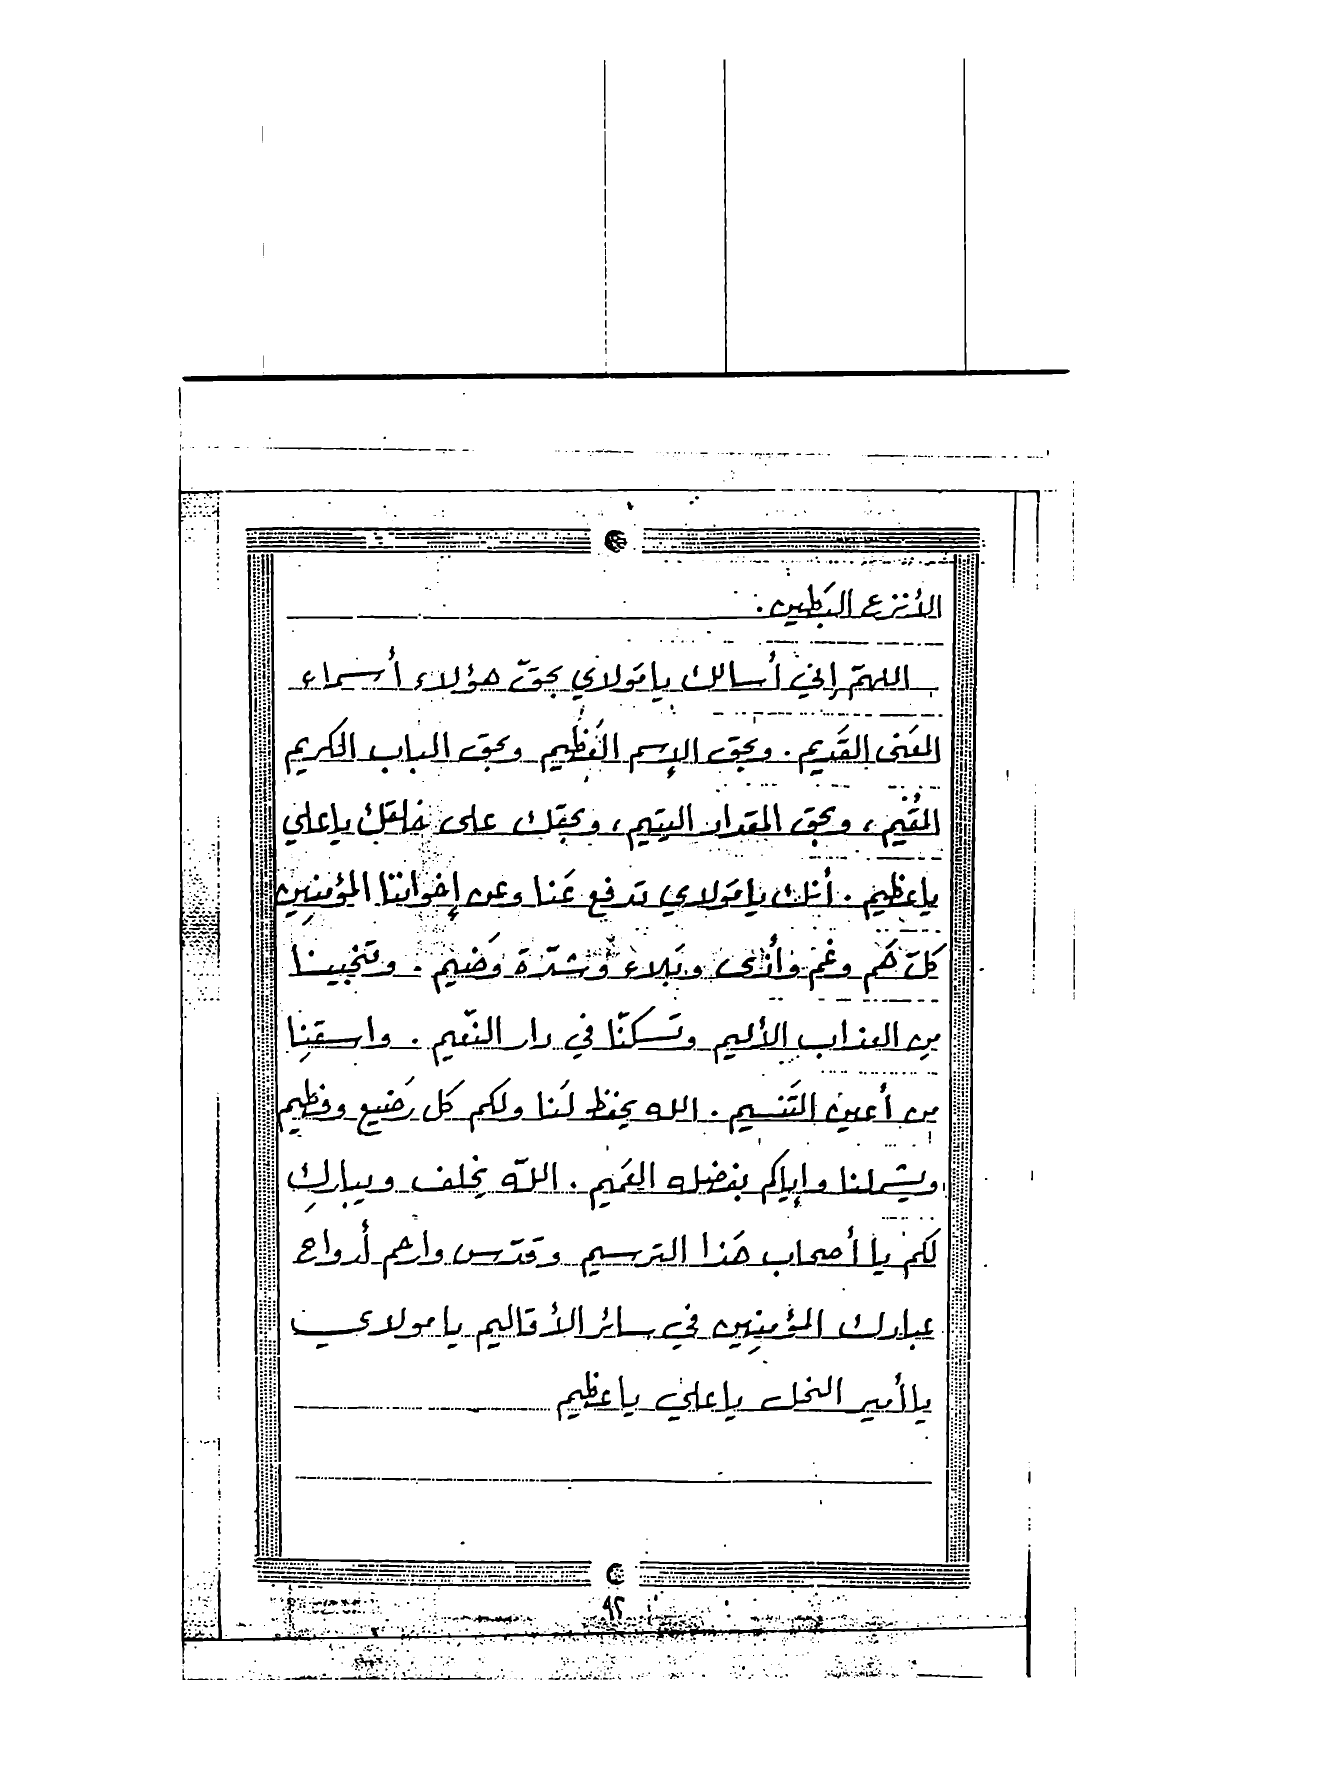 الأنزع البَطين.
اللهمّ إني أسالك يا مَولاي بحقّ هؤلاء أسماء
المعَنى القَديم. وبحق الإسم العَظيم وبحق الباب الكريم
المقُيم، وبحق المقداد اليتيم، وبحقك على خلقك يا علي
يا عظيم. أنك يا مَولاي تدفع عَنا وعن إخواننا المؤمنِين
كلّ هَم وغَم وأذى وبَلاء وشدّة وَضيم. وتَنجينا
مِن العذاب الأليم وتَسكنّا في دار النّعيم. واسقنِا
من أعين التَنسيم. الله يحفظ لَنا ولَكم كل رَضيع وفطيم
ويشملنا وإياكم بفضله العَميم. اللّه يخِلف ويبارِك
لَكم يا أصحاب هَذا الترسيم وقدّس وارحم أرواح
عبادك المؤمنِين في سائر الأقاليم يا مولاي
يا أمير النحل يا علي يا عظيم
٩٢